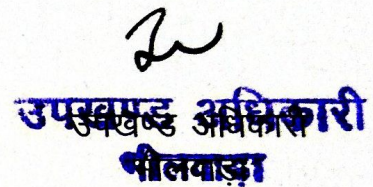 उपखण्ड अधिकारी
उपखण्ड अधिकारी
भीलवाड़ा